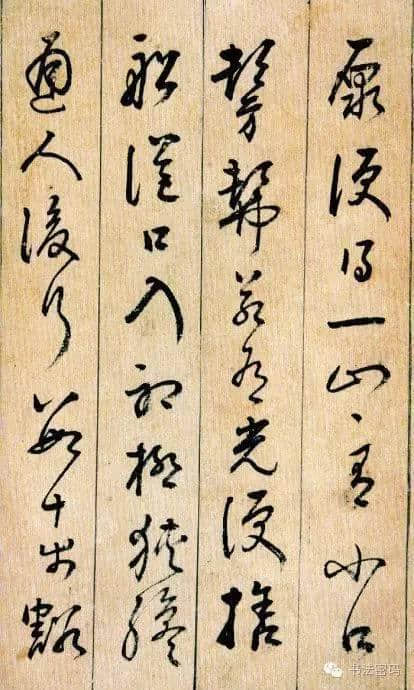 原便得一山〻有小口
髣髴若有光便捨
船從口入初極狹纔
通人復行數十步豁
书法密码